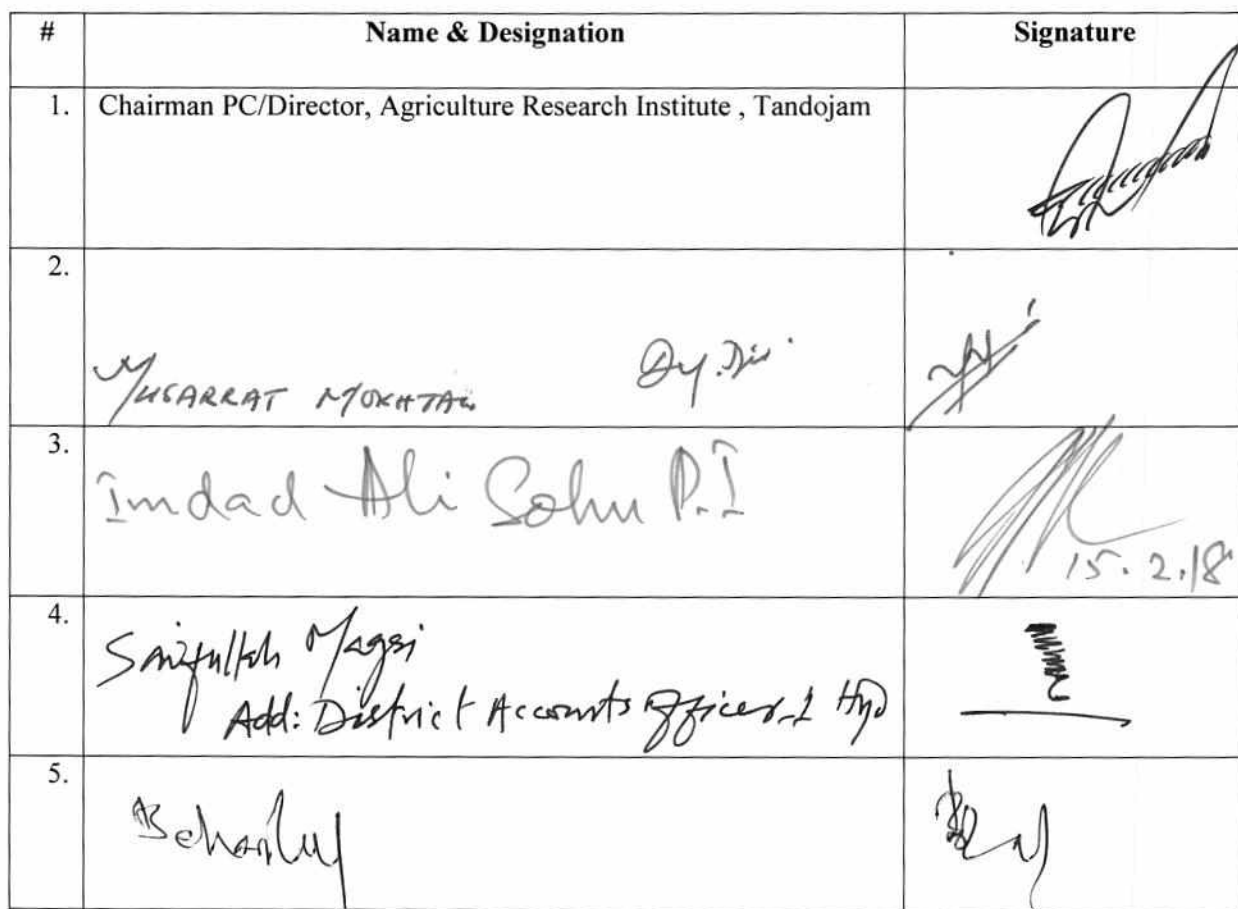 # Name & Designation Signature
1. Chairman PC/Director, Agriculture Research Institute , Tandojam
2.
MUSARRAT MOKHTAR Dy. Dir.
3.
Imdad Ali Sohu P.I
15.2.18
4.
Saifullah Magsi
Add: District Accounts Officer-I Hyd
5.